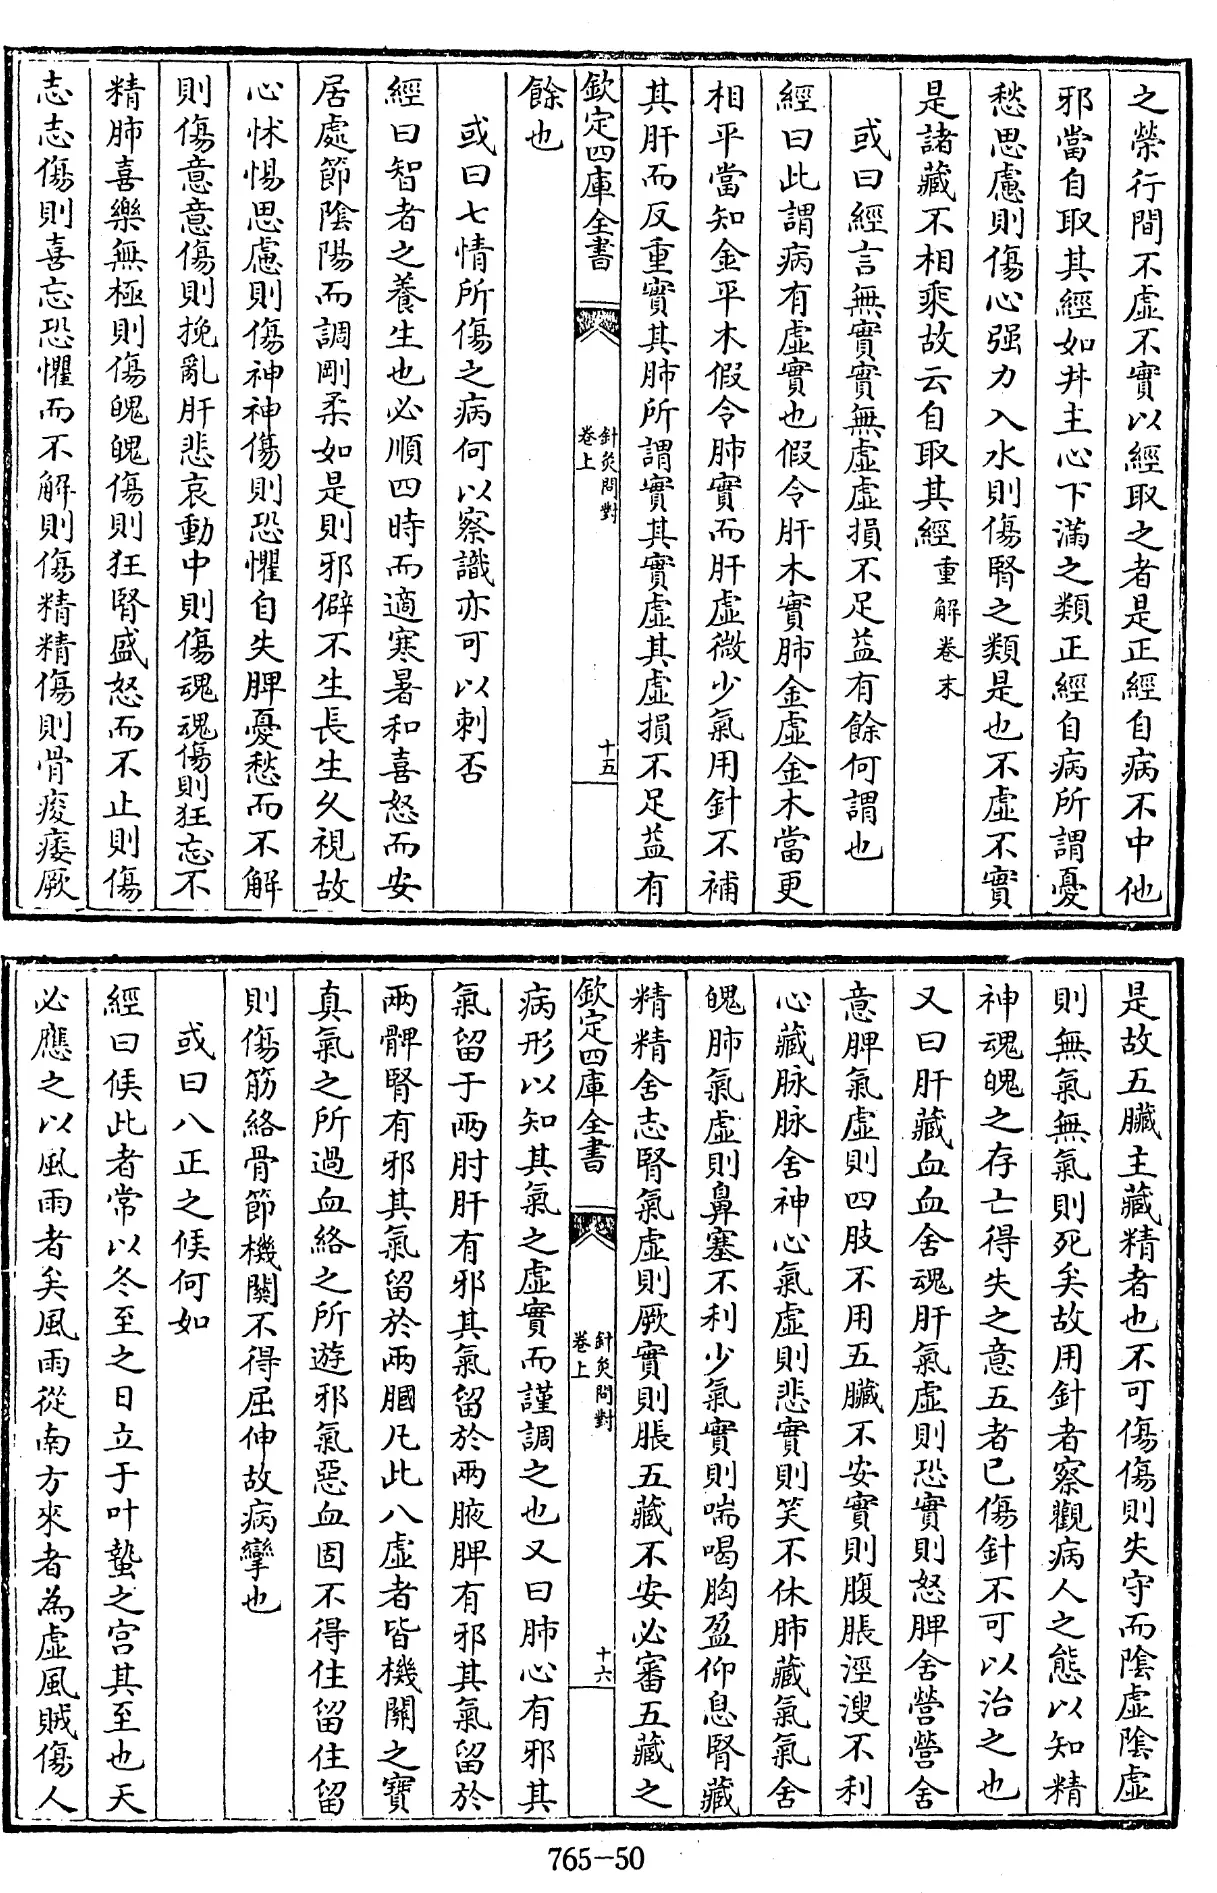 之滎行間不虛不實以經取之者是正經自病不中他
邪當自取其經如井主心下滿之類正經自病所謂憂
愁思慮則傷心强力入水則傷腎之類是也不虛不實
是諸藏不相乘故云自取其經重解卷末
或曰經言無實實無虛虛損不足益有餘何謂也
經曰此謂病有虛實也假令肝木實肺金虛金木當更
相平當知金平木假令肺實而肝虛微少氣用針不補
其肝而反重實其肺所謂實其實虛其虛損不足益有
欽定四庫全書
針灸問對
卷上
十五
餘也
或曰七情所傷之病何以察識亦可以刺否
經曰智者之養生也必順四時而適寒暑和喜怒而安
居處節陰陽而調剛柔如是則邪僻不生長生久視故
心怵惕思慮則傷神神傷則恐懼自失脾憂愁而不解
則傷意意傷則挽亂肝悲哀動中則傷魂魂傷則狂忘不
精肺喜樂無極則傷魄魄傷則狂腎盛怒而不止則傷
志志傷則喜忘恐懼而不解則傷精精傷則骨痠痿厥
是故五臟主藏精者也不可傷傷則失守而陰虛陰虛
則無氣無氣則死矣故用針者察觀病人之態以知精
神魂魄之存亡得失之意五者已傷針不可以治之也
又曰肝藏血血舍魂肝氣虛則恐實則怒脾舍營營舍
意脾氣虛則四肢不用五臟不安實則腹脹涇溲不利
心藏脉脉舍神心氣虛則悲實則笑不休肺藏氣氣舍
魄肺氣虛則鼻塞不利少氣實則喘喝胸盈仰息腎藏
精精舍志腎氣虛則厥實則脹五藏不安必審五藏之
欽定四庫全書
針灸問對
卷上
十六
病形以知其氣之虛實而謹調之也又曰肺心有邪其
氣留于兩肘肝有邪其氣留於兩腋脾有邪其氣留於
兩髀腎有邪其氣留於兩膕凡此八虛者皆機關之寶
真氣之所過血絡之所遊邪氣惡血固不得住留住留
則傷筋絡骨節機關不得屈伸故病攣也
或曰八正之候何如
經曰候此者常以冬至之日立于叶蟄之宫其至也天
必應之以風雨者矣風雨從南方來者為虛風賊傷人
765-50